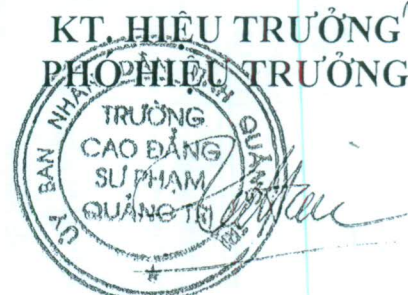 KT. HIỆU TRƯỞNG
PHÓ HIỆU TRƯỞNG
ỦY BAN NHÂN DÂN TỈNH QUẢNG TRỊ
TRƯỜNG
CAO ĐẲNG
SƯ PHẠM
QUẢNG TRỊ